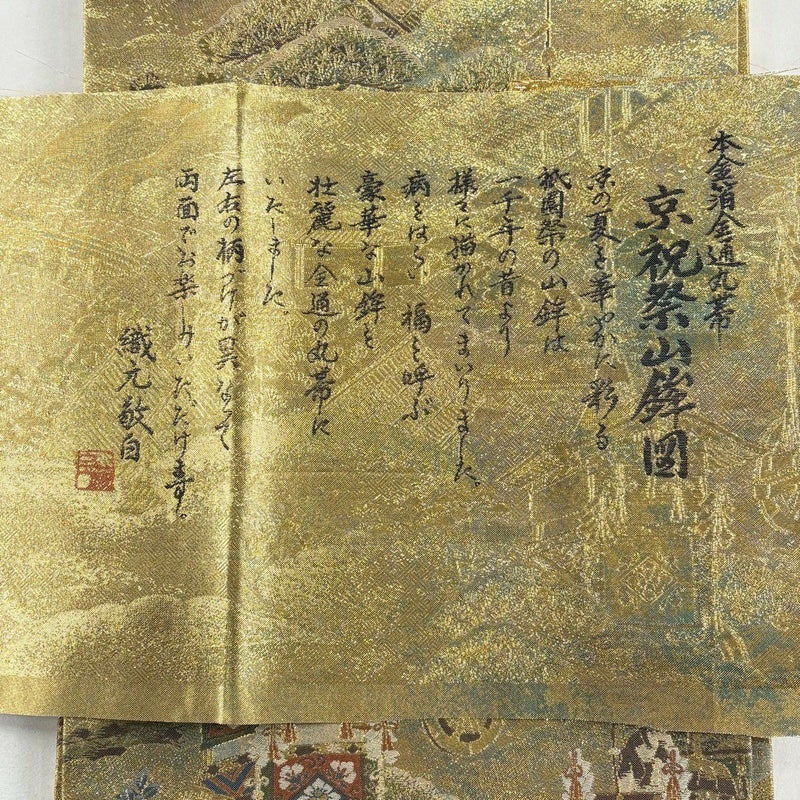 本金箔全通丸帯
京祝祭山鉾圖
京の夏を華やかに彩る
祇園祭の山鉾は
一千年の昔より
様々に描かれてまいりました。
病をはらい 福を呼ぶ
豪華な山鉾を
壮麗な全通の丸帯に
いたしました。
左右の柄づけが異なって
両面でお楽しみいただけ
織元敬白